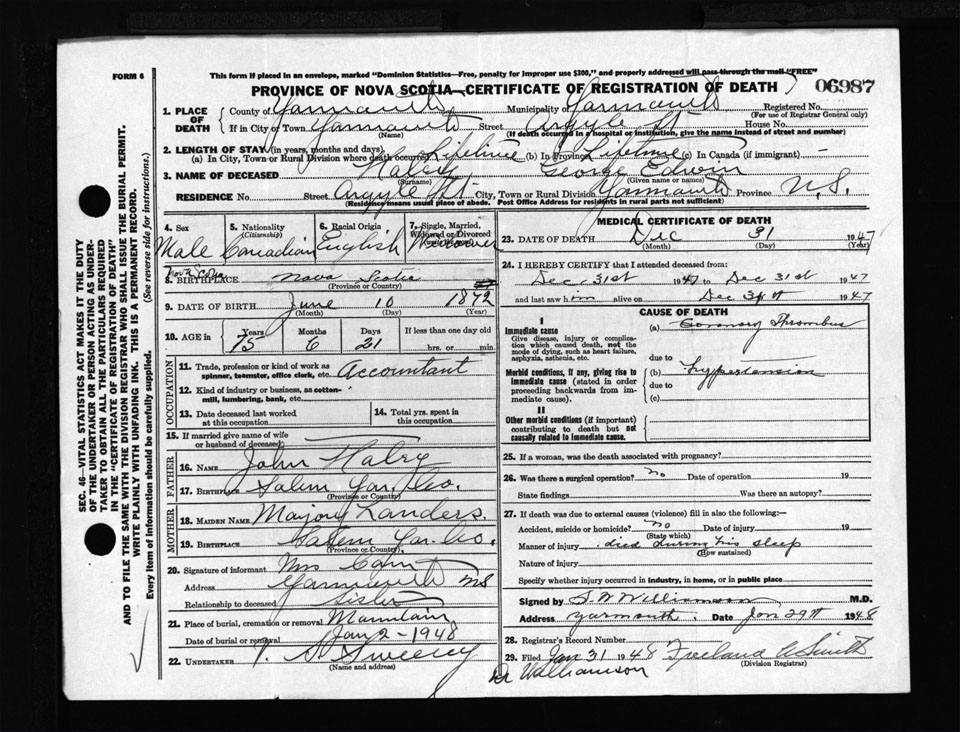 FORM 6
This form if placed in an envelope, marked "Dominion Statistics—Free, penalty for improper use $300," and properly addressed will pass through the mail "FREE"
PROVINCE OF NOVA SCOTIA—CERTIFICATE OF REGISTRATION OF DEATH 06987
1. PLACE OF DEATH
County of Yarmouth Municipality of Yarmouth Registered No.
(For use of Registrar General only)
If in City or Town Yarmouth Street Argyle St House No.
(If death occurred in a hospital or institution, give the name instead of street and number)
2. LENGTH OF STAY (in years, months and days)
(a) In City, Town or Rural Division where death occurred Lifetime (b) In Province Lifetime (c) In Canada (if immigrant) —
3. NAME OF DECEASED Haley George Edwin
(Surname) (Given name or names)
RESIDENCE No. Street Argyle St City, Town or Rural Division Yarmouth Province N.S.
(Residence means usual place of abode. Post Office Address for residents in rural parts not sufficient)
4. Sex 5. Nationality (Citizenship) 6. Racial Origin 7. Single, Married, Widowed or Divorced
Male Canadian English Widower
Nova Scotia
8. BIRTHPLACE Nova Scotia
(Province or Country)
9. DATE OF BIRTH June 10 1872
(Month) (Day) (Year)
10. AGE in Years Months Days If less than one day old
75 6 21 hrs. or min.
OCCUPATION
11. Trade, profession or kind of work as spinner, teamster, office clerk, etc. Accountant
12. Kind of industry or business, as cotton-mill, lumbering, bank, etc.
13. Date deceased last worked at this occupation
14. Total yrs. spent in this occupation
15. If married give name of wife or husband of deceased
FATHER
16. NAME John Haley
17. BIRTHPLACE Salem Yar. Co.
(Province or Country)
MOTHER
18. MAIDEN NAME Majory Landers.
19. BIRTHPLACE Salem Yar. Co.
(Province or Country)
20. Signature of informant Mrs
Address Yarmouth NS
Relationship to deceased Sister
21. Place of burial, cremation or removal Mountain
Date of burial or removal Jan 2 - 1948
22. UNDERTAKER V. S. Sweeny
(Name and address)
MEDICAL CERTIFICATE OF DEATH
23. DATE OF DEATH Dec 31 1947
(Month) (Day) (Year)
24. I HEREBY CERTIFY that I attended deceased from:
Dec 31st 1947 to Dec 31st 1947
and last saw him alive on Dec 31st 1947
CAUSE OF DEATH
I
Immediate cause
Give disease, injury or complication which caused death, not the mode of dying, such as heart failure, asphyxia, asthenia, etc.
(a) Coronary Thrombus
due to
Morbid conditions, if any, giving rise to immediate cause (stated in order proceeding backwards from immediate cause)
(b) Hypertension
due to
(c)
II
Other morbid conditions (if important) contributing to death but not causally related to immediate cause.
25. If a woman, was the death associated with pregnancy?
26. Was there a surgical operation? no Date of operation 19
State findings Was there an autopsy?
27. If death was due to external causes (violence) fill in also the following:—
Accident, suicide or homicide? no Date of injury 19
(State which)
Manner of injury died during his sleep
(How sustained)
Nature of injury
Specify whether injury occurred in industry, in home, or in public place
Signed by S. W. Williamson M.D.
Address Yarmouth Date Jan 29th 1948
28. Registrar's Record Number
29. Filed Jan 31 1948 Freeland Smith
(Division Registrar)
Dr Williamson
SEC. 46—VITAL STATISTICS ACT MAKES IT THE DUTY
OF THE UNDERTAKER OR PERSON ACTING AS UNDER-
TAKER TO OBTAIN ALL THE PARTICULARS REQUIRED
IN THE "CERTIFICATE OF REGISTRATION OF DEATH"
AND TO FILE THE SAME WITH THE DIVISION REGISTRAR WHO SHALL ISSUE THE BURIAL PERMIT.
WRITE PLAINLY WITH UNFADING INK. THIS IS A PERMANENT RECORD.
Every item of information should be carefully supplied. (See reverse side for instructions.)